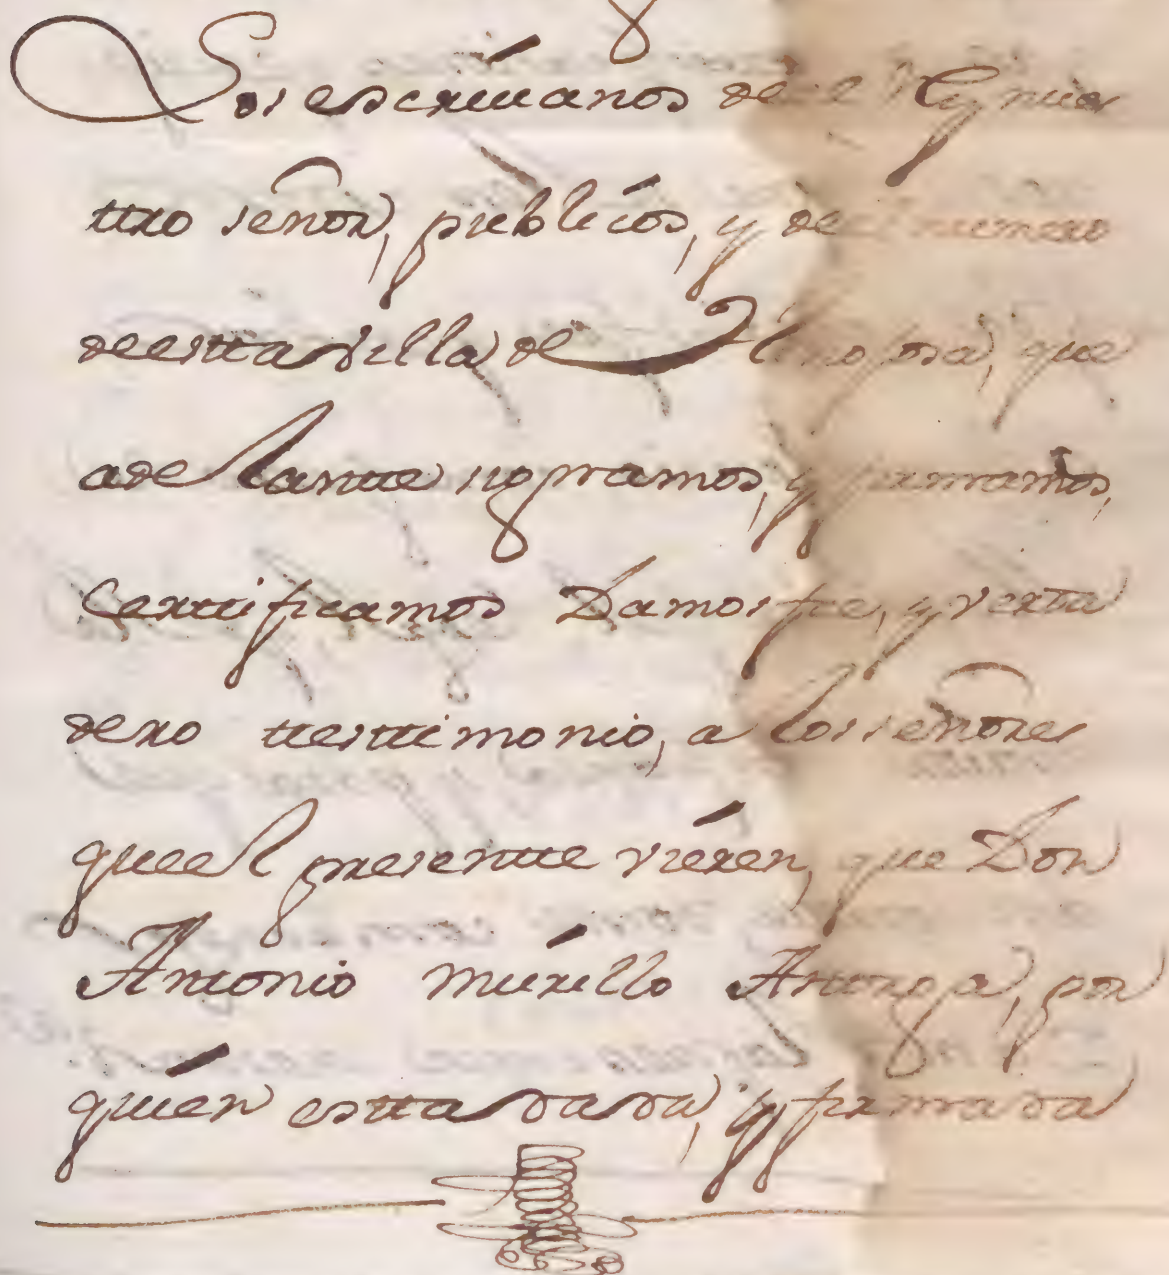 Los escriuanos de el Rey nues
ttro señor, publicos, y de el numero
de estta Villa de Hinojosa, que
adelantte signamos, y firmamos,
Certtificamos Damos fee, y verda
dero ttesttimonio, a los señores
que el presentte vieren, que Don
Antonio Murillo Antonga, por
quien estta dada, y firmada